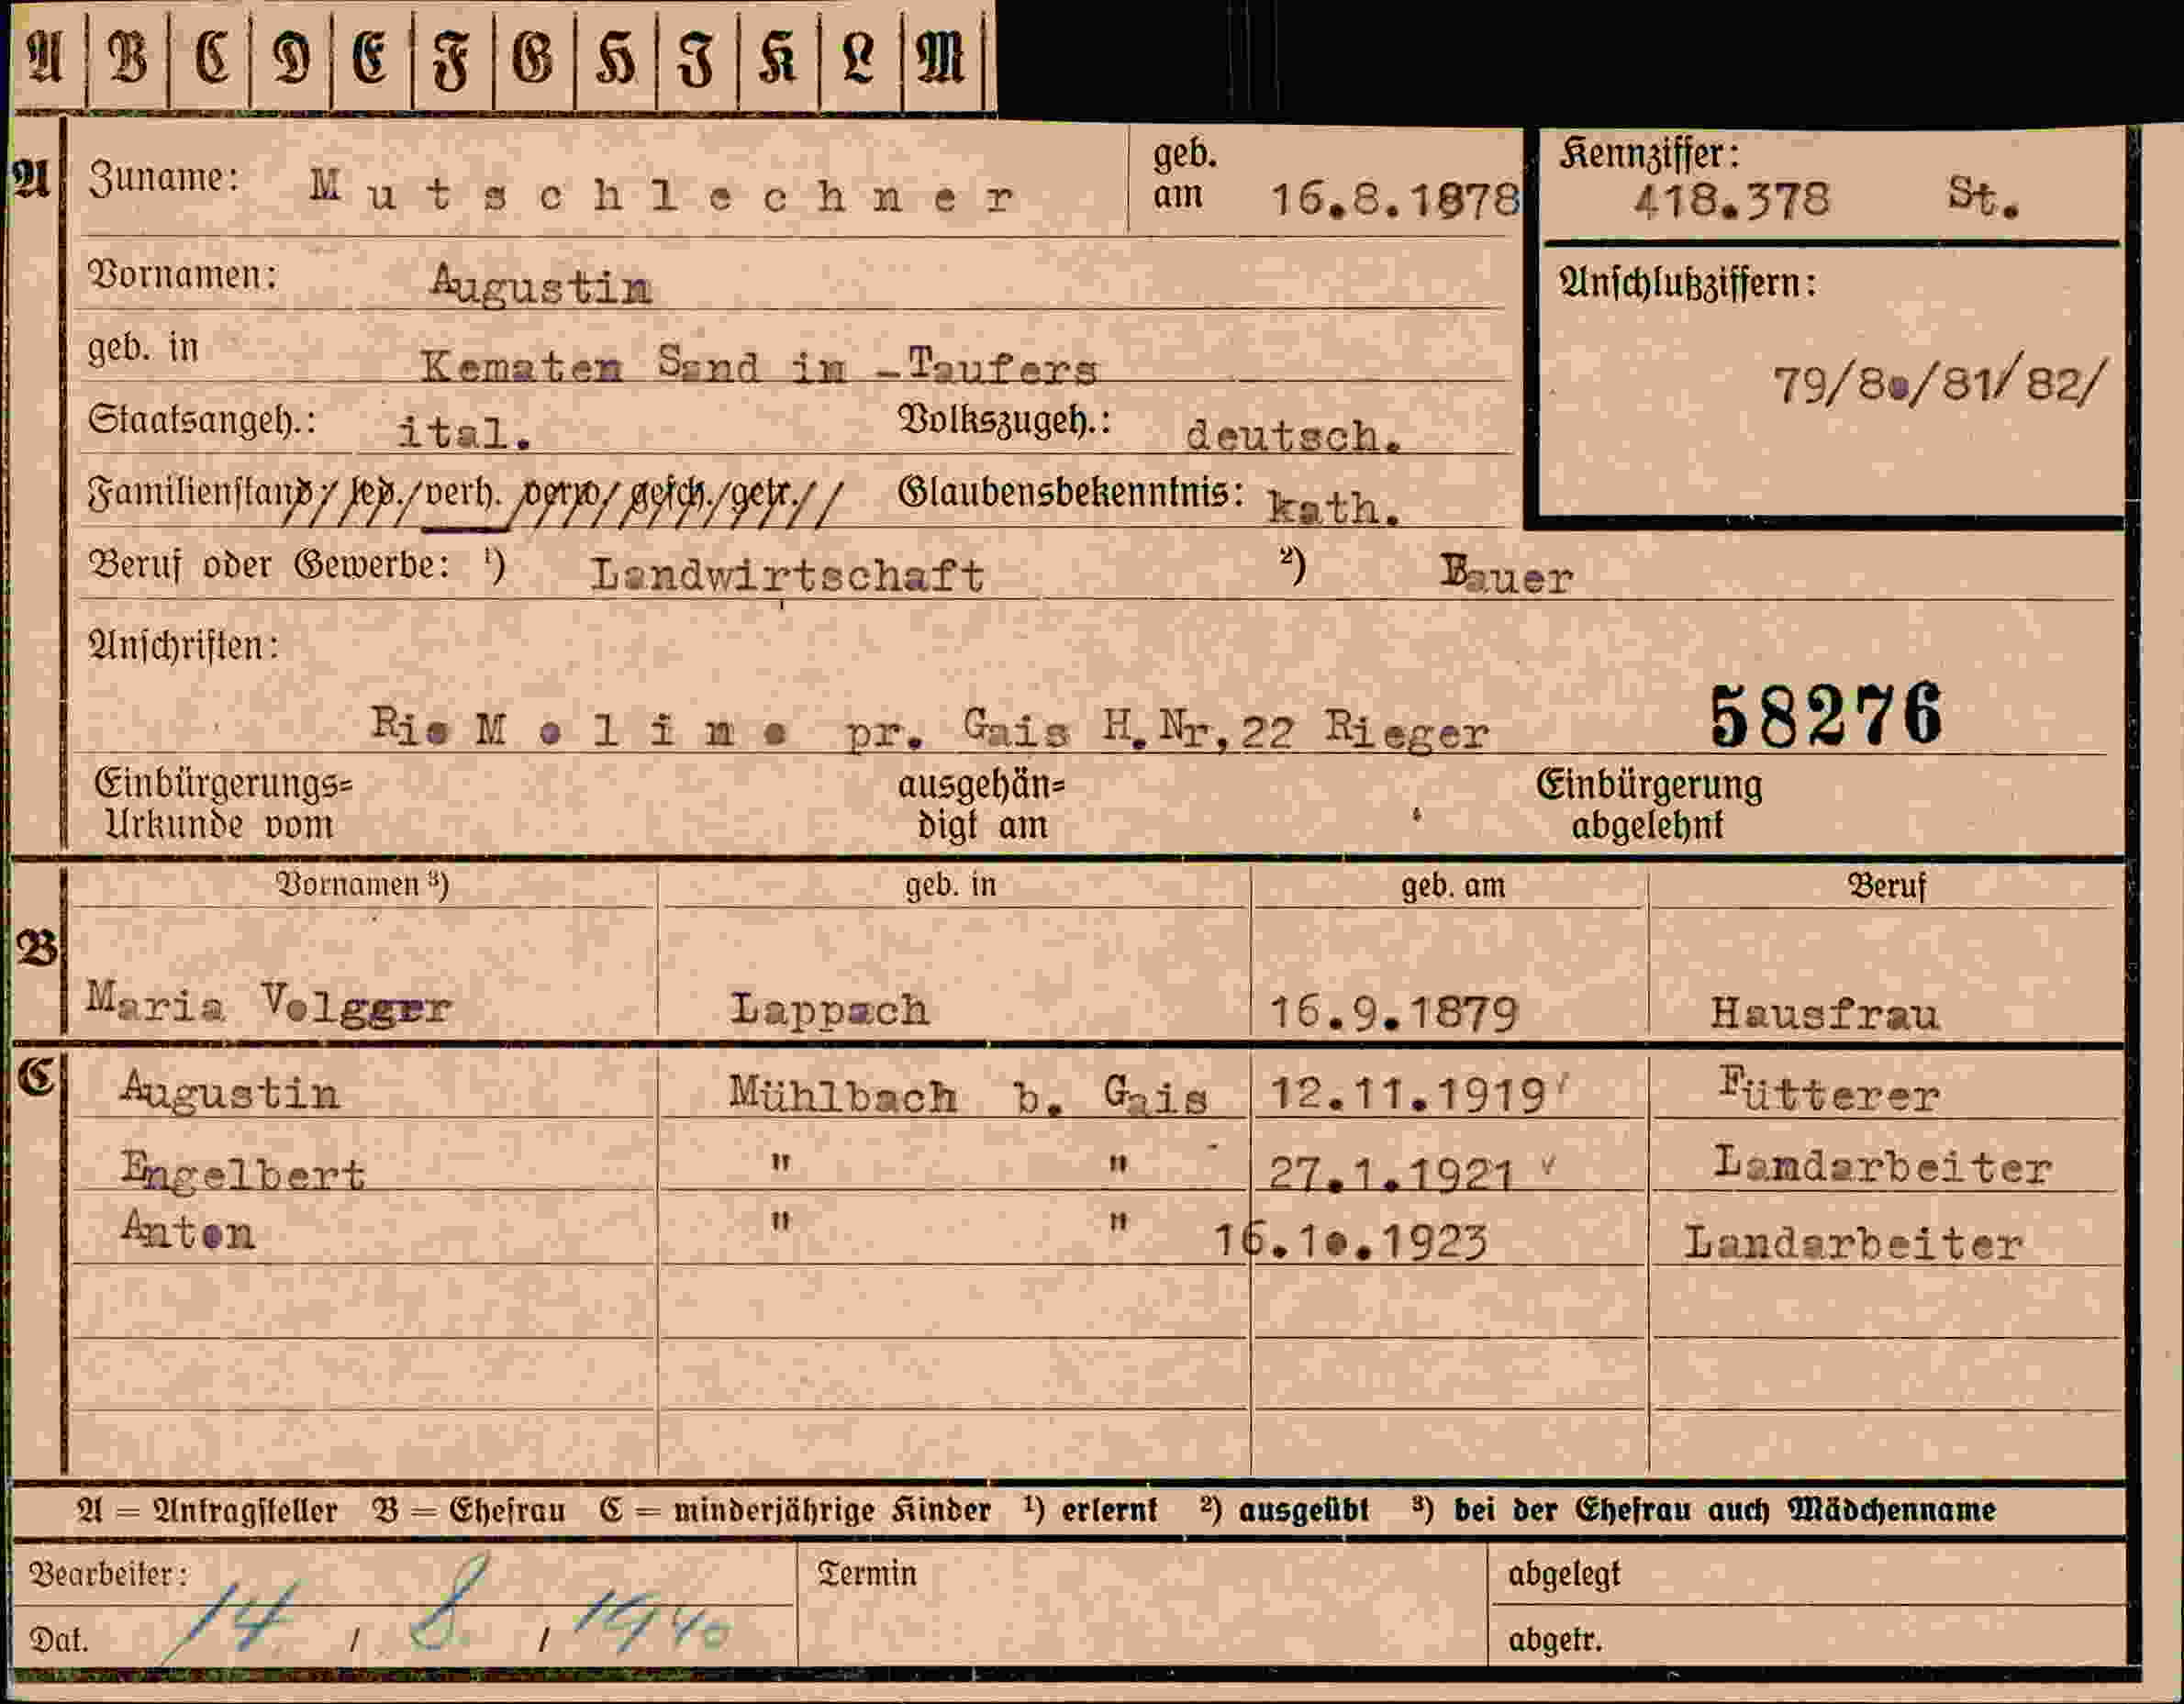 A B C D E F G H I K L M
A Zuname: Mutschlechner geb. am 16.8.1878 Kennziffer: 418.378 St.
Vornamen: Augustin Anschlußziffern:
geb. in Kematen Sand in -Taufers 79/80/81/82/
Staatsangeh.: ital. Volkszugeh.: deutsch.
Familienstand: led./verh. verw/gesch./getr.// Glaubensbekenntnis: kath.
Beruf oder Gewerbe: ¹) Landwirtschaft ²) Bauer
Anschriften:
Rio Molino pr. Gais H.Nr,22 Rieger 58276
Einbürgerungs= ausgehän= Einbürgerung
Urkunde vom digt am abgelehnt
Vornamen ³) geb. in geb. am Beruf
B
Maria Volgger Lappach 16.9.1879 Hausfrau
C Augustin Mühlbach b. Gais 12.11.1919 Fütterer
Engelbert " " 27.1.1921 Landarbeiter
Anton " " 16.10.1923 Landarbeiter
A = Antragsteller B = Ehefrau C = minderjährige Kinder ¹) erlernt ²) ausgeübt ³) bei der Ehefrau auch Mädchenname
Bearbeiter: Termin abgelegt
Dat. 14 / 8 / 1940 abgetr.